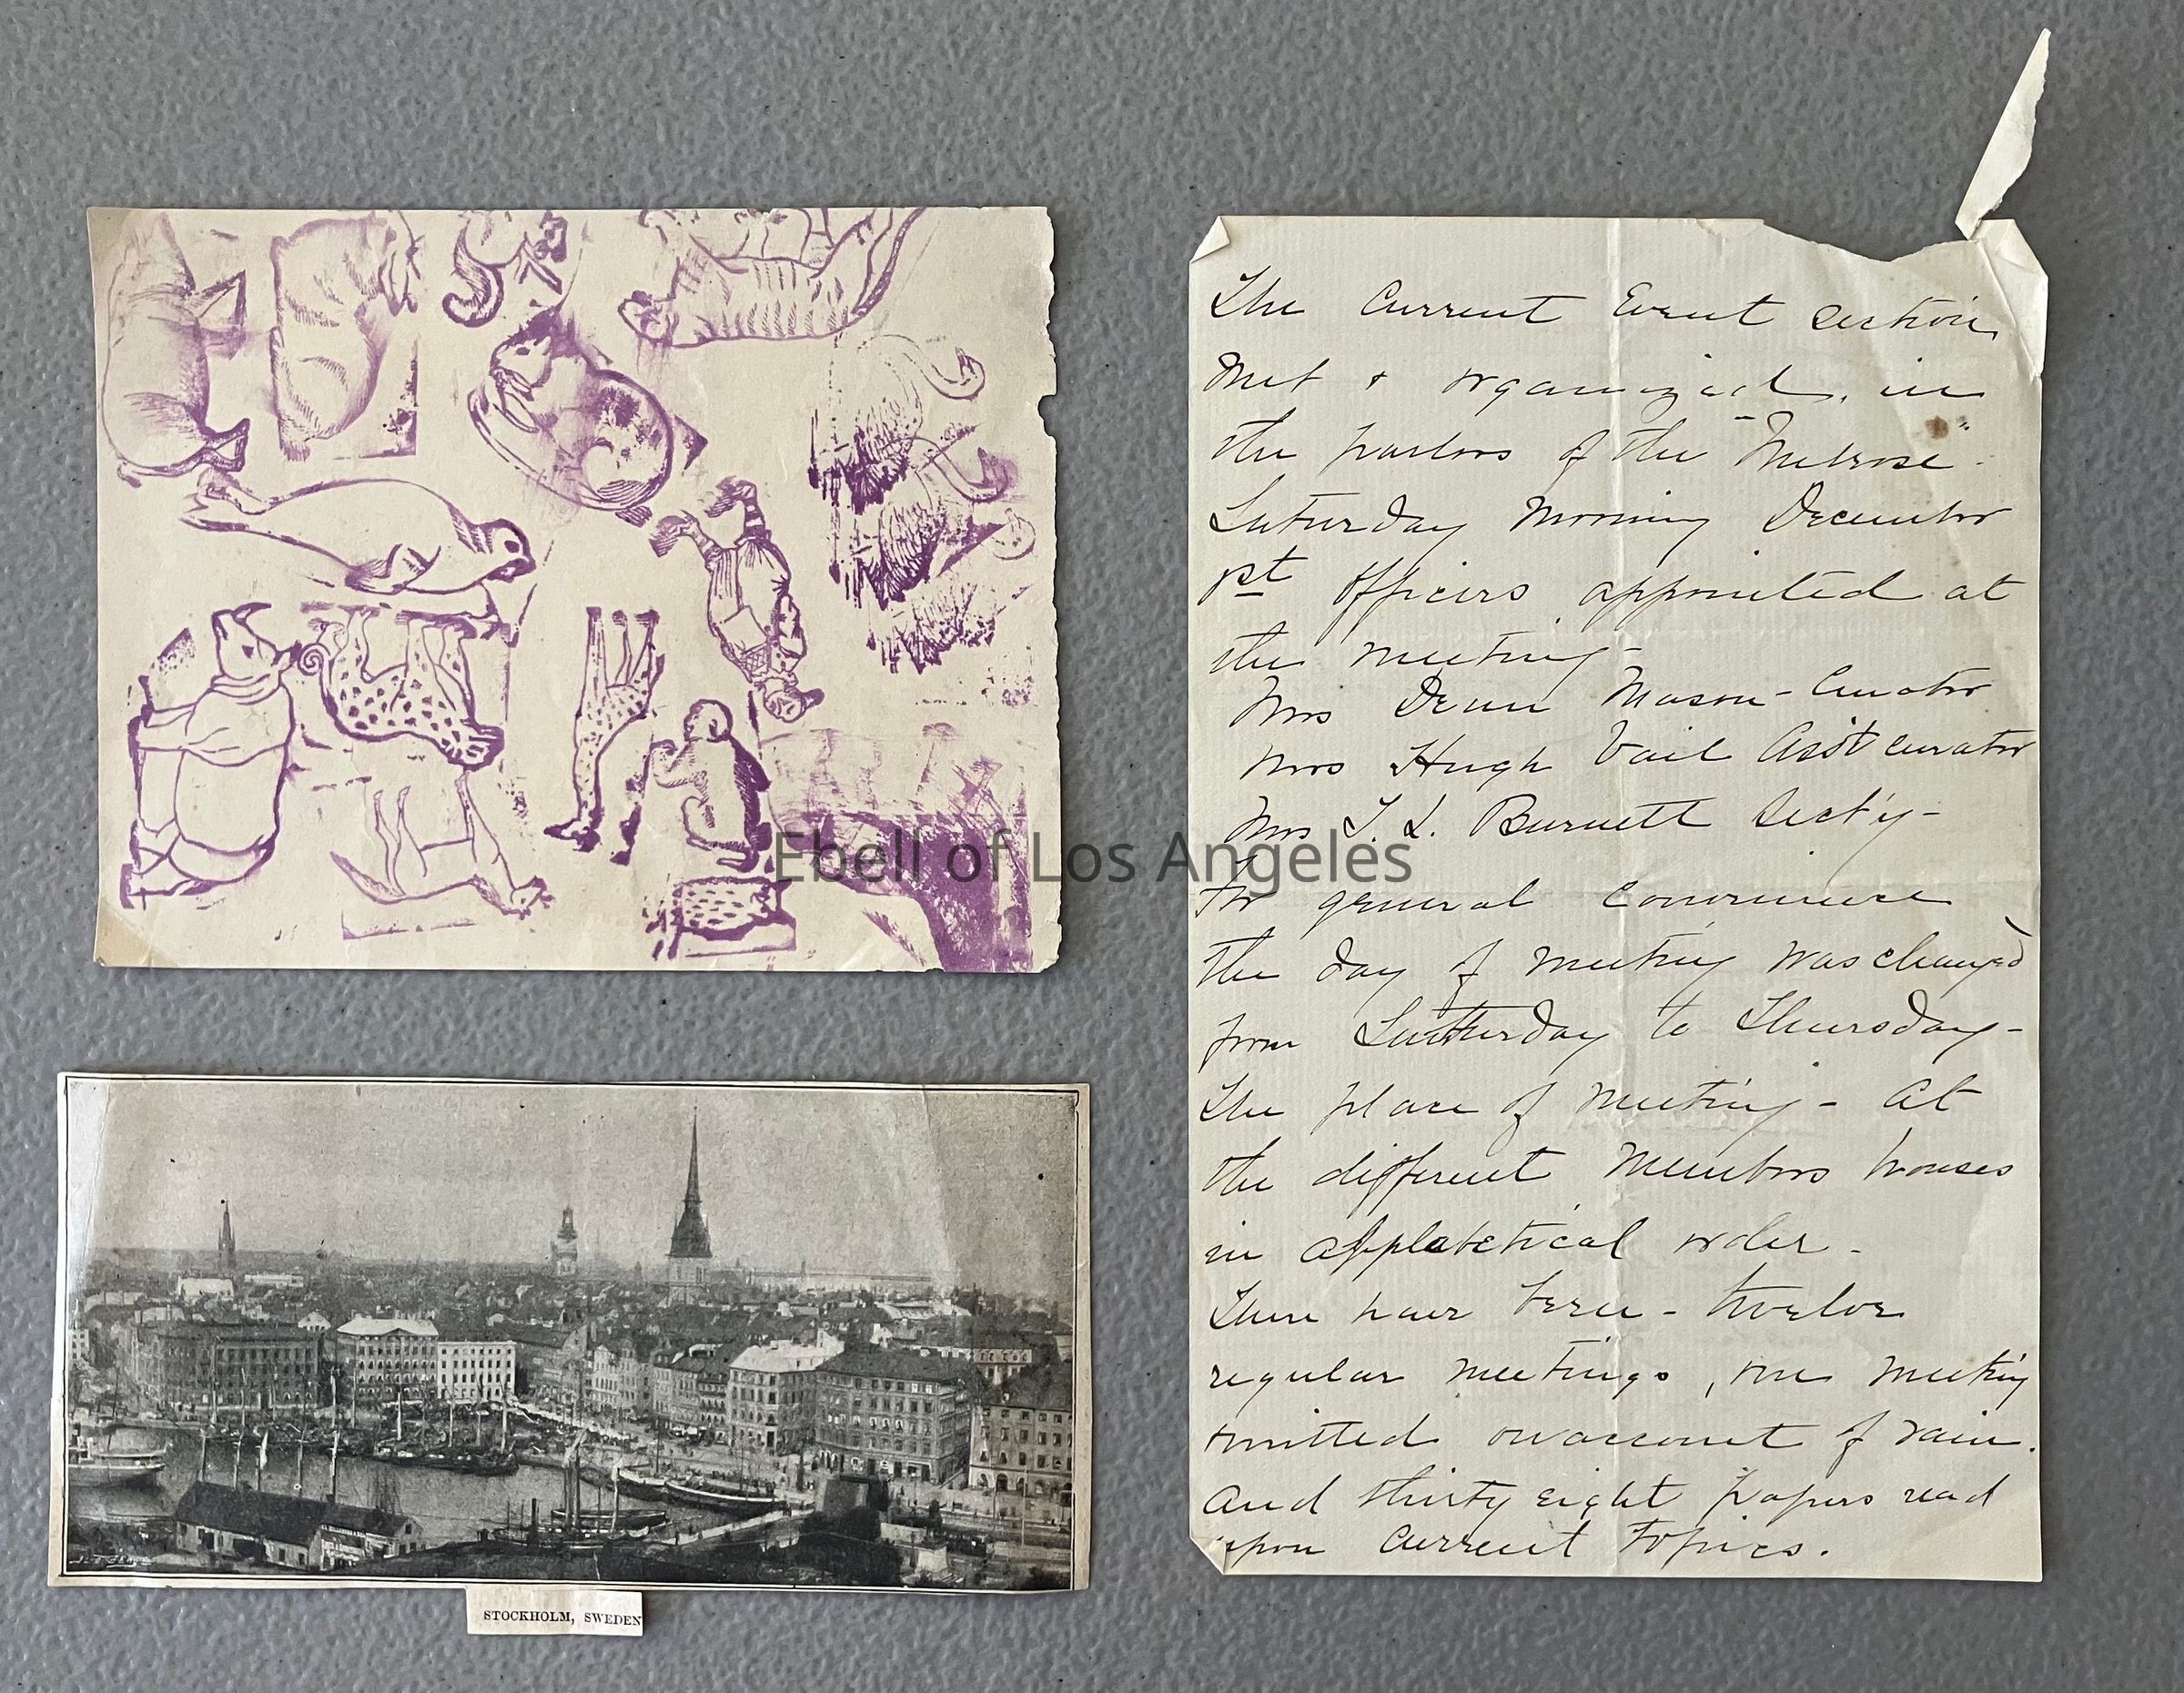 The Current Event Section
Met & organized, in
the parlors of the "Melrose"
Saturday Morning December
1st Officers appointed at
the meeting-
Mrs Dean Mason- Curator
Mrs Hugh Vail Ass't curator
Mrs T. L. Burnett Sect'y-
For general convenience
the day of meeting was changed
from Satturday to Thursday-
The place of meeting- at
the different Members houses
in applabetical order-
There have been- twelve
regular meetings, one meeting
omitted on account of rain.
And thirty eight papers read
upon current topics.
Ebell of Los Angeles
STOCKHOLM, SWEDEN